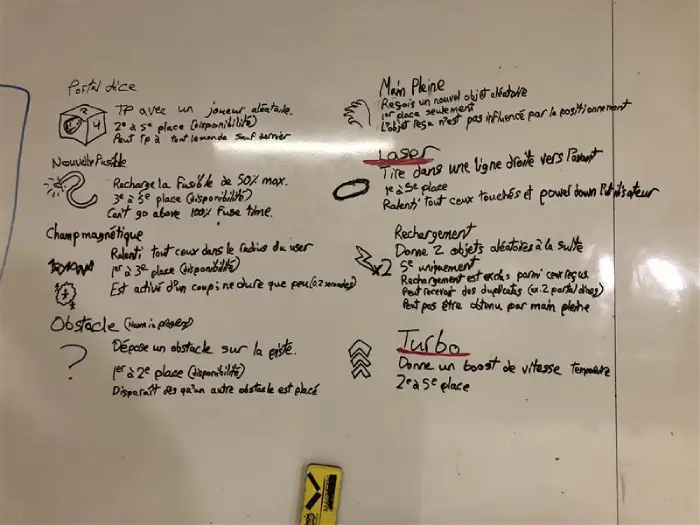 Portal dice
TP avec un joueur aléatoire.
2e à 5e place (disponibilité)
Peut tp à tout le monde sauf dernier
Nouvelle Fusible
Recharge la fusible de 50% max.
3e à 5e place (disponibilité)
Can't go above 100% fuse time.
Champ magnétique
Ralenti tout ceux dans le radius du user
1er à 3e place (disponibilité)
Est activé d'un coup; ne dure que peu (0.2 secondes)
Obstacle (Name in progress)
?
Dépose un obstacle sur la piste.
1er à 2e place (disponibilité)
Disparaît dès qu'un autre obstacle est placé
Main Pleine
Reçois un nouvel objet aléatoire
1er place seulement
L'objet reçu n'est pas influencé par le positionnement
Laser
Tire dans une ligne droite vers l'avant
1e à 5e place
Ralenti tout ceux touchés et power down l'utilisateur
Rechargement
x2
Donne 2 objets aléatoires à la suite
5e uniquement
Rechargement est exclus parmi ceux reçus
Peut recevoir des duplicats (ex. 2 portal dices)
Peut pas être obtenu par main pleine
Turbo
Donne un boost de vitesse temporaire
2e à 5e place